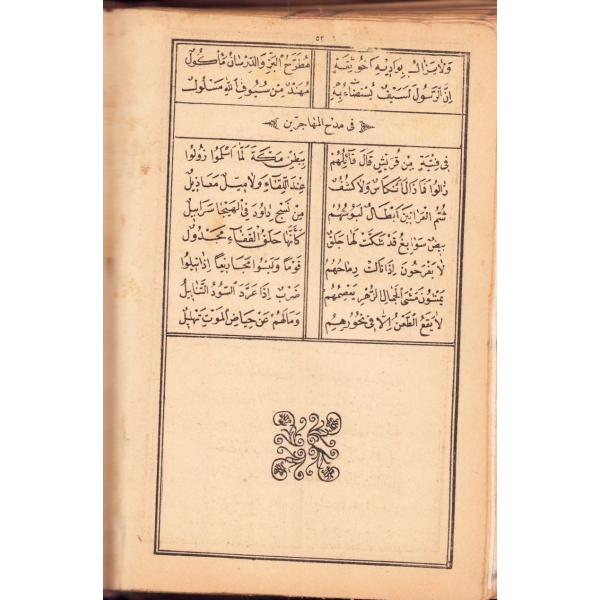 ٥٢
وَلَا يَزَالُ بِوَادِيهِ اَخُو ثِقَةٍ مُطَرَّحُ الْبَزِّ وَالدِّرْسَانِ مَأْكُولُ
اِنَّ الرَّسُولَ لَسَيْفٌ يُسْتَضَاءُ بِهِ مُهَنَّدٌ مِنْ سُيُوفِ اللّٰهِ مَسْلُولُ
فى مدح المهاجرين
فِى فِتْيَةٍ مِنْ قُرَيْشٍ قَالَ قَائِلُهُمْ بِبَطْنِ مَكَّةَ لَمَّا اَسْلَمُوا زُولُوا
زَالُوا فَمَا زَالَ اَنْكَاسٌ وَلَا كُشُفٌ عِنْدَ اللِّقَاءِ وَلَا مِيلٌ مَعَازِيلُ
شُمُّ الْعَرَانِينَ اَبْطَالٌ لَبُوسُهُمُ مِنْ نَسْجِ دَاوُدَ فِى الْهَيْجَا سَرَابِيلُ
بِيضٌ سَوَابِغُ قَدْ شُكَّتْ لَهَا حَلَقٌ كَأَنَّهَا حَلَقُ الْقَفْعَاءِ مَجْدُولُ
لَا يَفْرَحُونَ اِذَا نَالَتْ رِمَاحُهُمُ قَوْمًا وَلَيْسُوا مَجَازِيعًا اِذَا نِيلُوا
يَمْشُونَ مَشْىَ الْجِمَالِ الزُّهْرِ يَعْصِمُهُمْ ضَرْبٌ اِذَا عَرَّدَ السُّودُ التَّنَابِيلُ
لَا يَقَعُ الطَّعْنُ اِلَّا فِى نُحُورِهِمُ وَمَا لَهُمْ عَنْ حِيَاضِ الْمَوْتِ تَهْلِيلُ